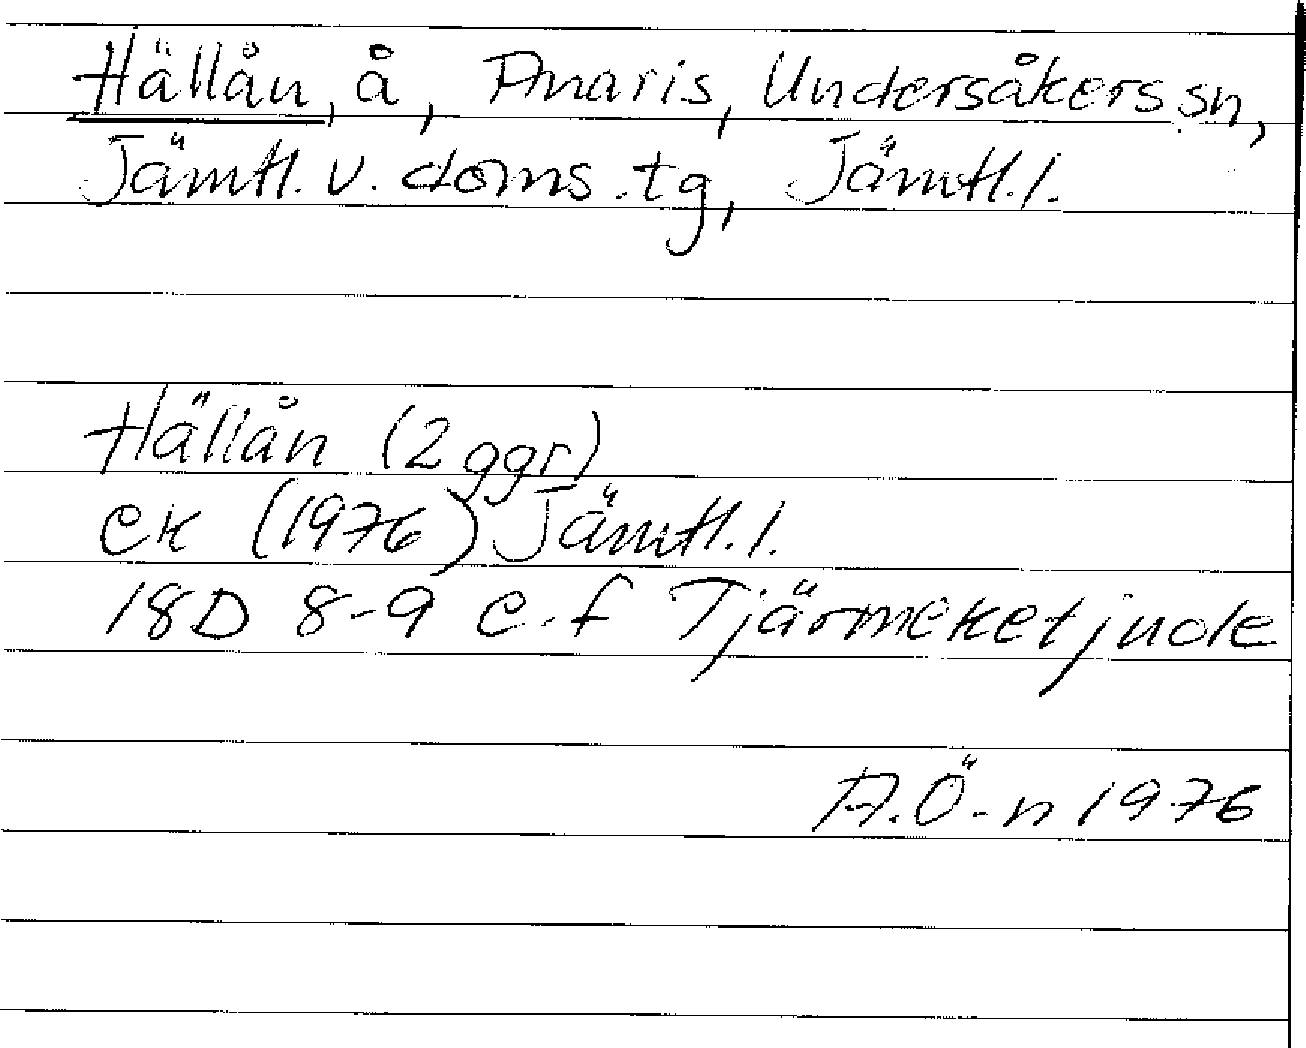 Hällån, å, Anaris, Undersåkers sn,
Jämtl. v. doms. tg, Jämtl. l.
Hällån (2 ggr)
EK (1976) Jämtl. l.
18D 8-9 e-f Tjärmeketjuole
A.Ö-n 1976